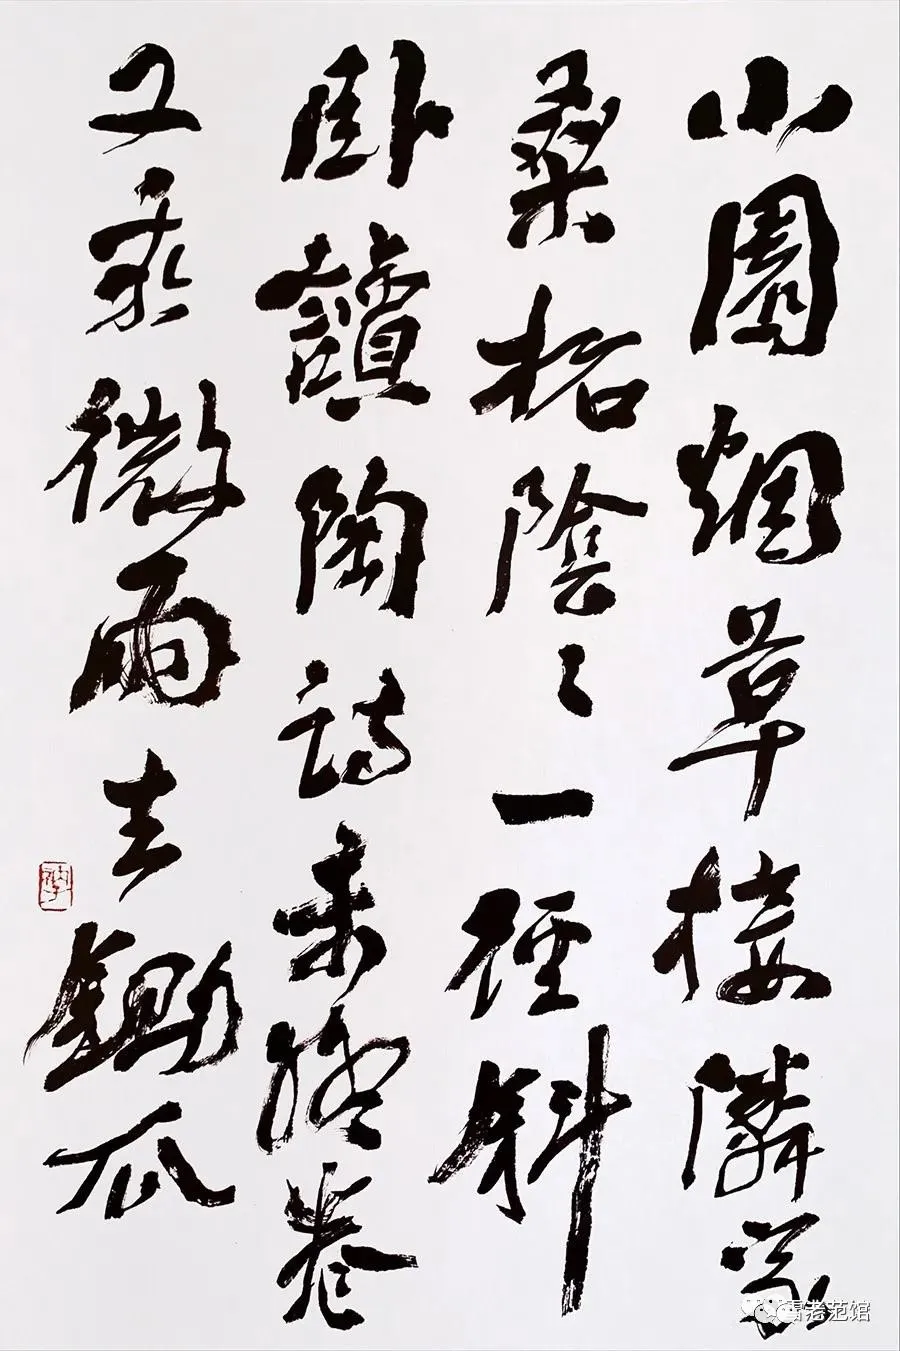 小園烟草接隣家
桑柘陰〻一徑斜
卧讀陶詩未終卷
又乘微雨去鋤瓜
雪老范馆